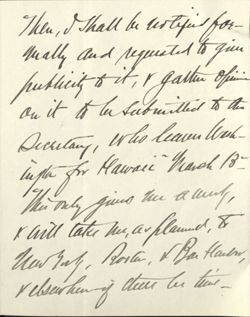 Then, I shall be notified for-
mally and requested to give
publicity to it, & gather opinion
on it to be submitted to the
Secretary, who leaves Wash-
ington for Hawaii March 15-
This only gives me a week,
& will take me, as planned, to
New York, Boston, & Bar Harbor,
& elsewhere if there be time-